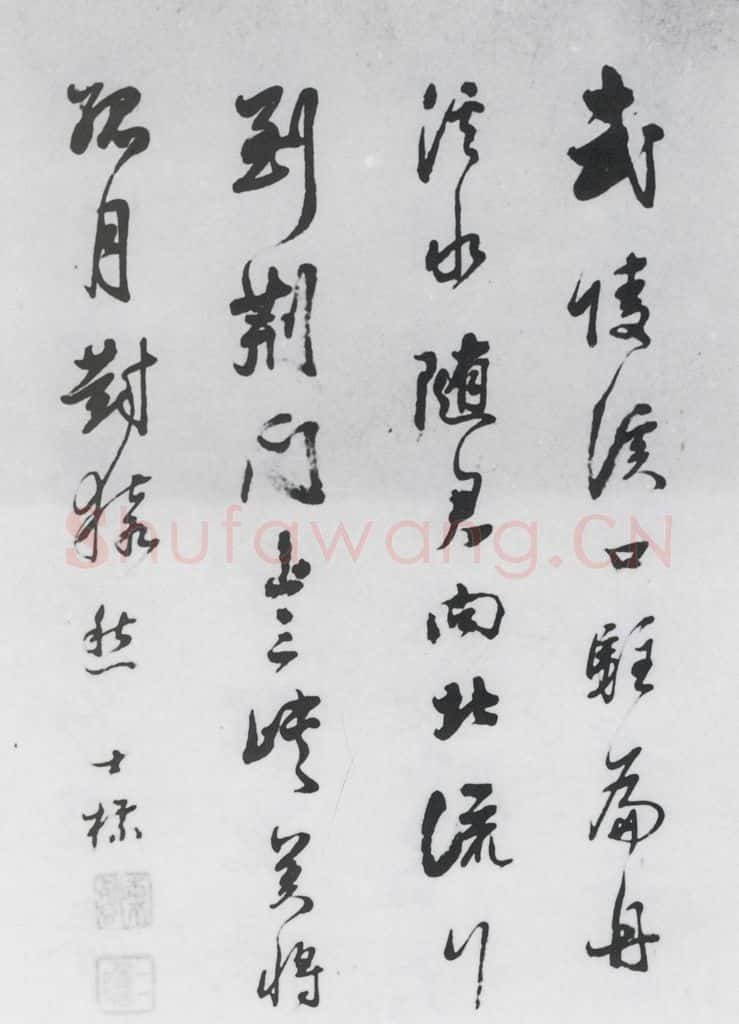 武陵溪口駐扁舟
溪水随君向北流行
到荆門上三峽莫將
孤月對猿愁 士標
Shufawang.CN